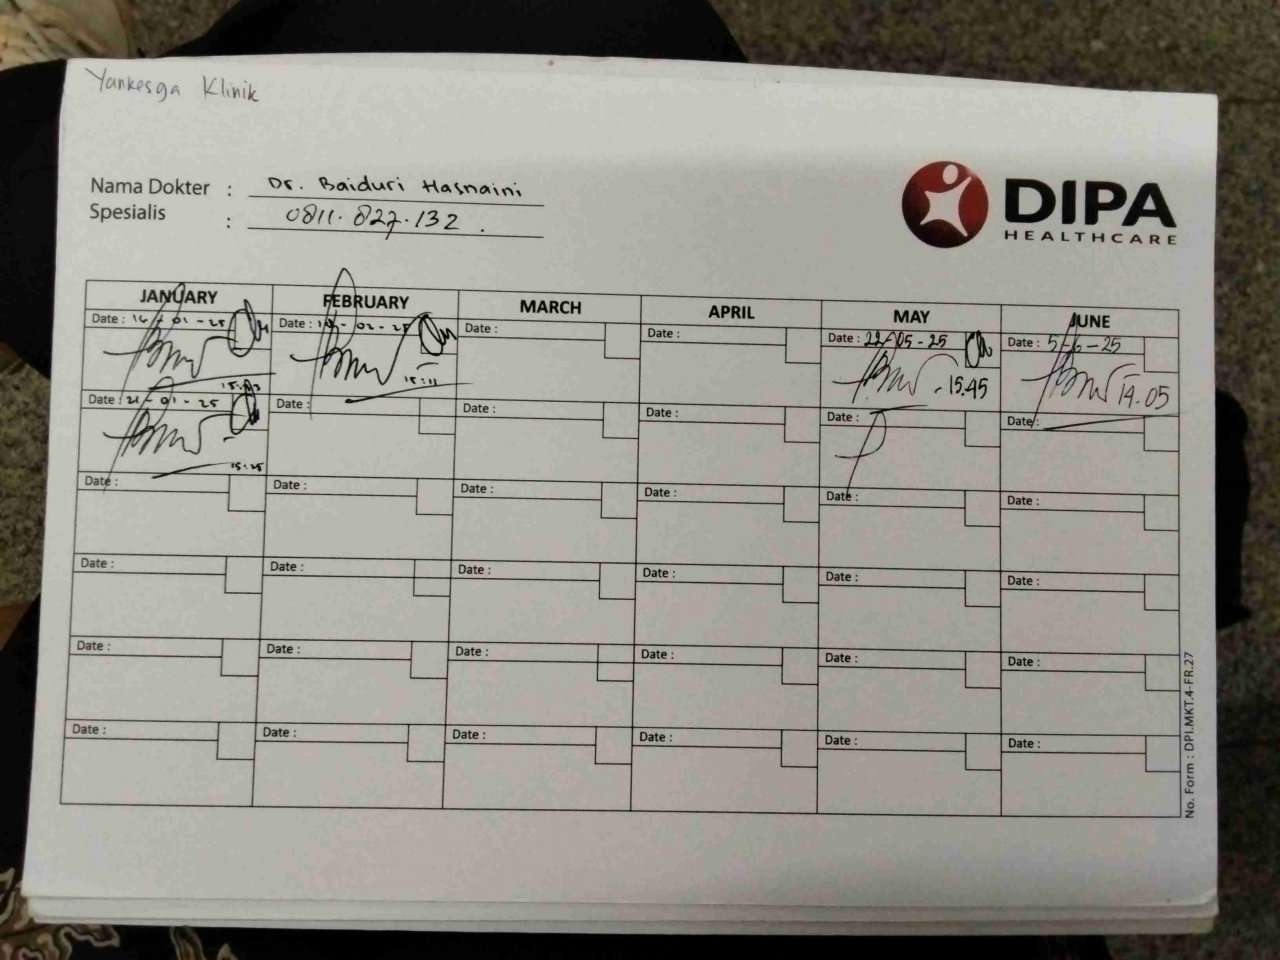 Yankesga Klinik
Nama Dokter : Dr. Baiduri Hasnaini
Spesialis : 0811.827.132.
DIPA
HEALTHCARE
JANUARY FEBRUARY MARCH APRIL MAY JUNE
Date : 16-01-25 Date : -02-25 Date : Date : Date : 22-05-25 Date : 5-6-25
15.11 15.45 14.05
Date : 21-01-25 Date : Date : Date : Date : Date :
15.25
Date : Date : Date : Date : Date : Date :
Date : Date : Date : Date : Date : Date :
Date : Date : Date : Date : Date : Date :
Date : Date : Date : Date : Date : Date :
No. Form : DPI.MKT.4-FR.27